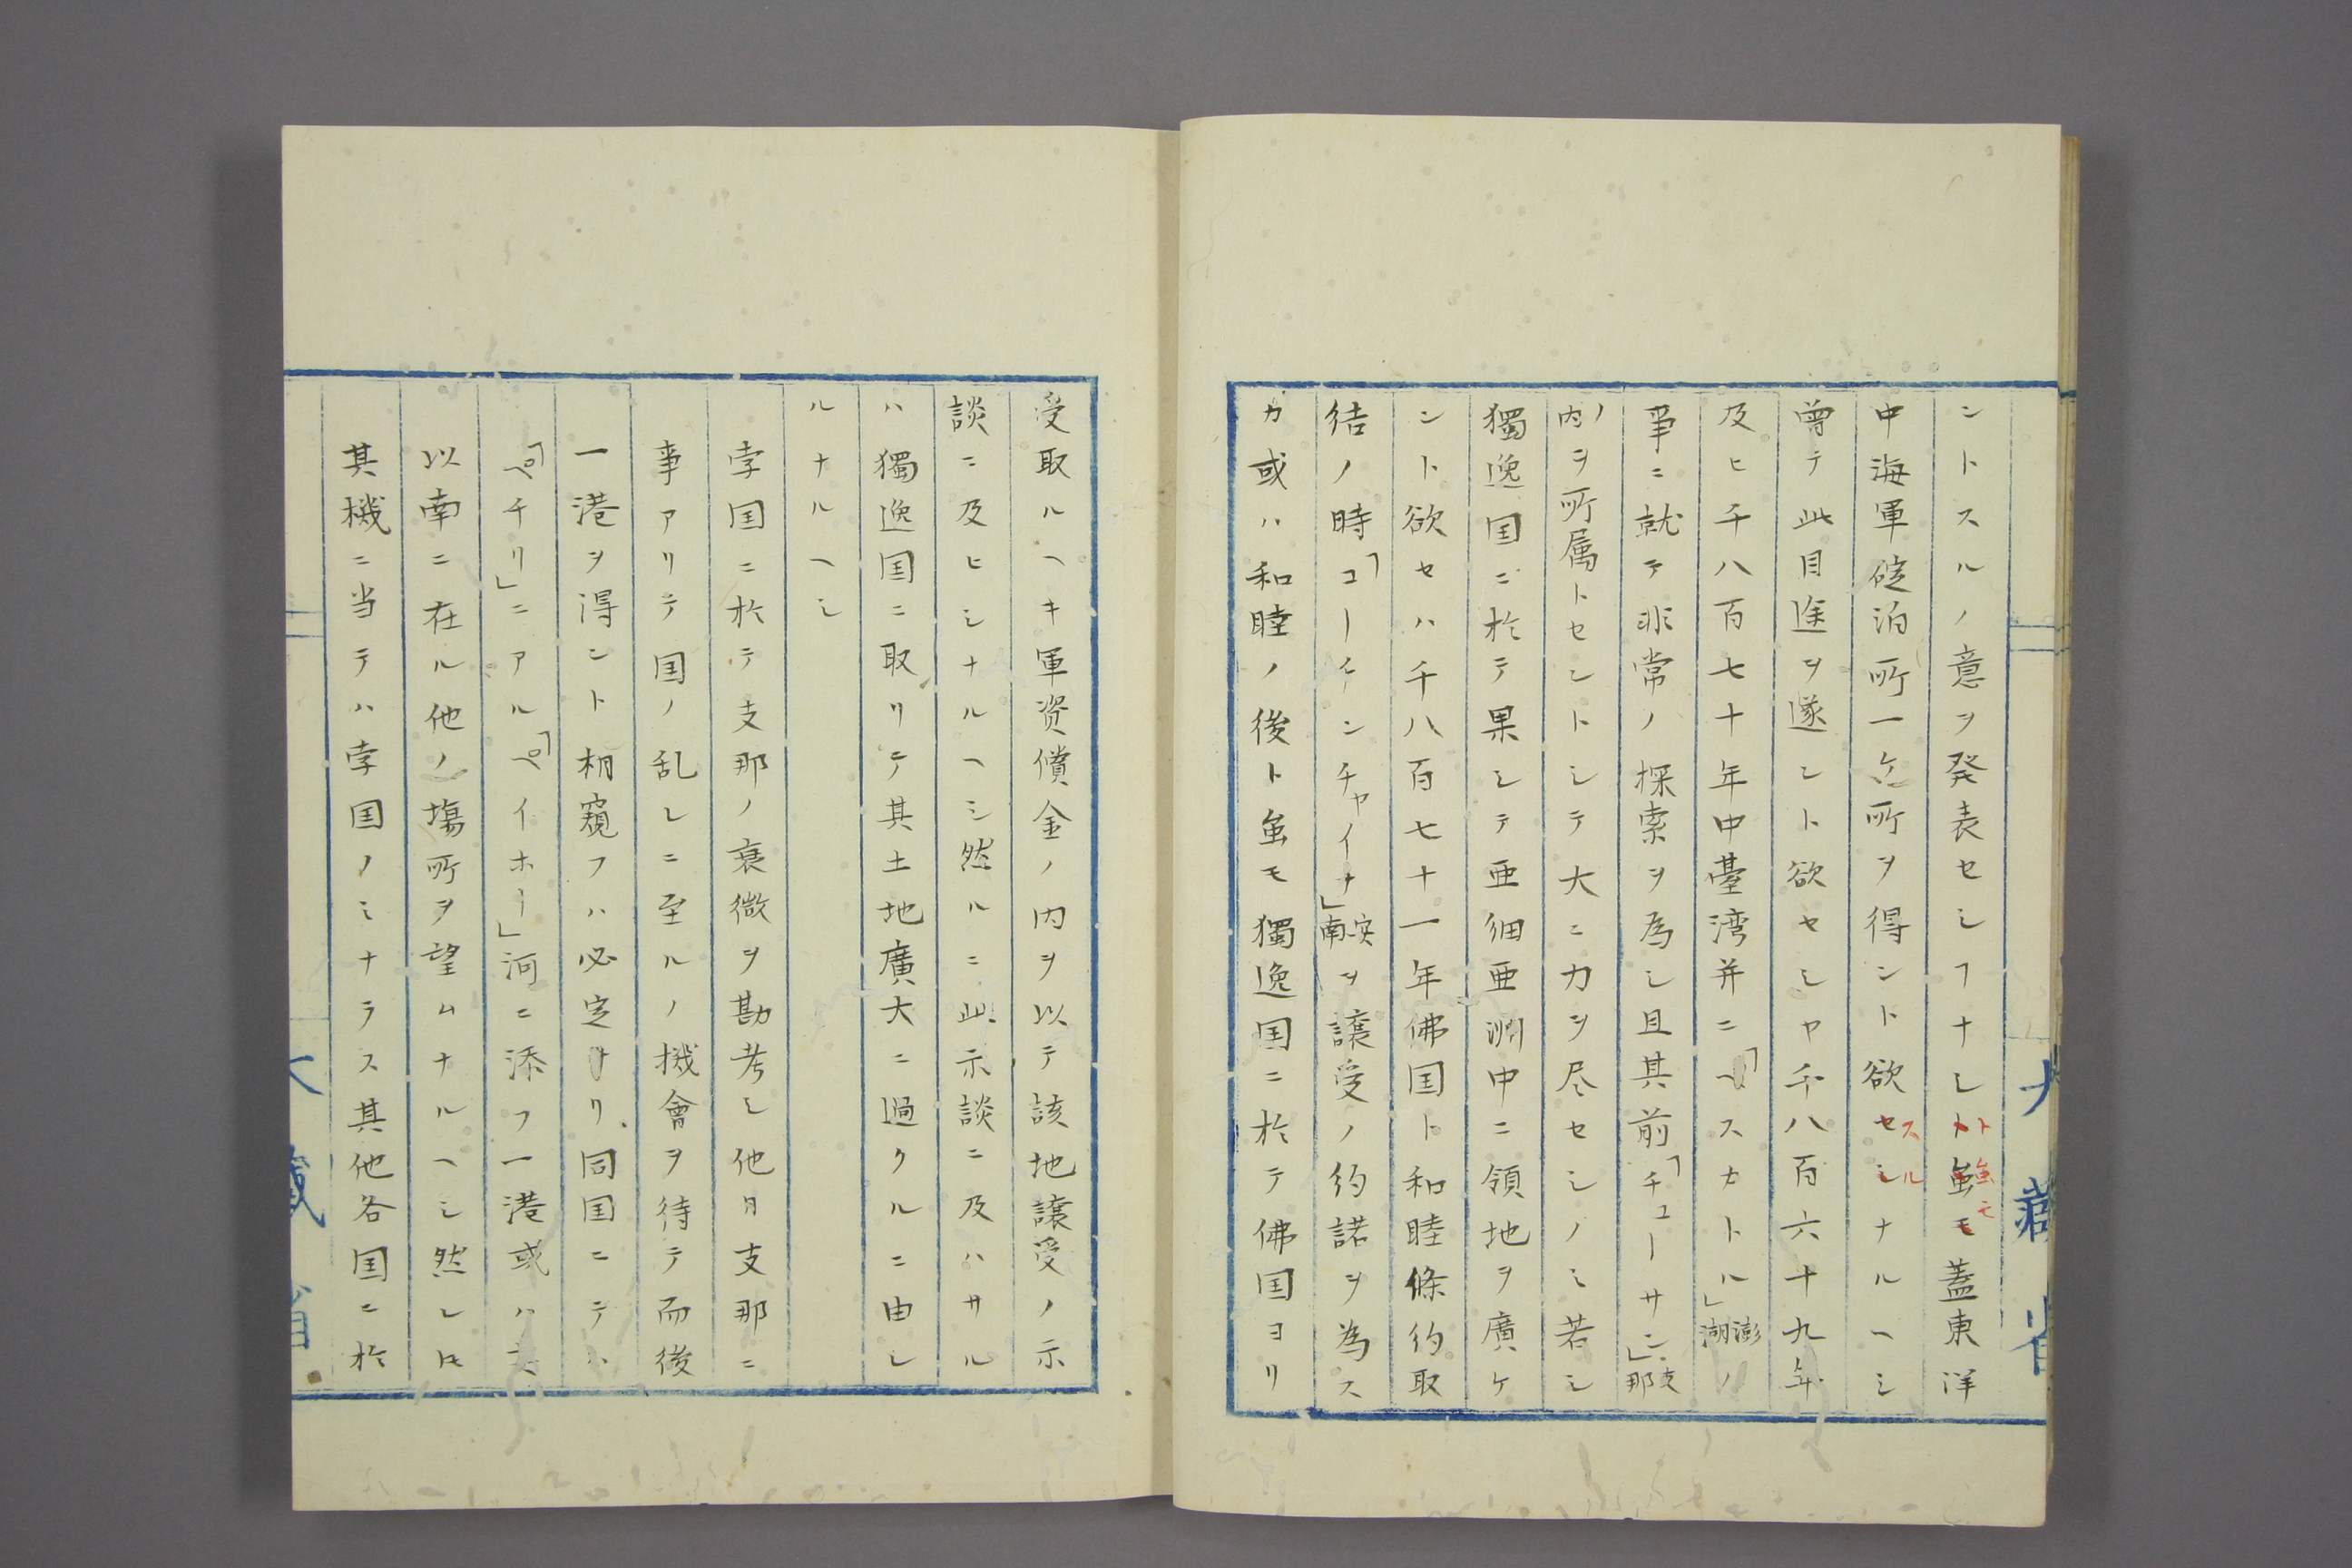 ントスルノ意ヲ発表セシヿナシト虽モ蓋東洋
トスル
虽モ
中海軍碇泊所一ケ所ヲ得ント欲セシナルヘシ
曽テ此目途ヲ遂ント欲セシヤ千八百六十九年
及ヒ千八百七十年中臺湾并ニ「ヘスカトル」澎湖ノ
事ニ就テ非常ノ探索ヲ為シ且其前「チユーサン」支那
ノ内ヲ所属トセントシテ大ニ力ヲ尽セシノミ若シ
獨逸国ニ於テ果シテ亜細亜洲中ニ領地ヲ廣ケ
ント欲セハ千八百七十一年佛国ト和睦條約取
結ノ時「コーチンチャイナ」安南ヲ譲受ノ約諾ヲ為ス
カ或ハ和睦ノ後ト虽モ獨逸国ニ於テ佛国ヨリ
大藏省
受取ルヘキ軍資償金ノ内ヲ以テ該地譲受ノ示
談ニ及ヒシナルヘシ然ルニ此示談ニ及ハサル
ハ獨逸国ニ取リテ其土地廣大ニ過クルニ由レ
ルナルヘシ
孛国ニ於テ支那ノ衰微ヲ勘考シ他日支那ニ
事アリテ国ノ乱レニ至ルノ機會ヲ待テ而後
一港ヲ得ント相窺フハ必定ナリ同国ニテハ
「ペチリ」ニアル「ペイホー」河ニ添フ一港或ハ其
以南ニ在ル他ノ塲所ヲ望ムナルヘシ然レ𪜈
其機ニ当テハ孛国ノミナラス其他各国ニ於
大藏省